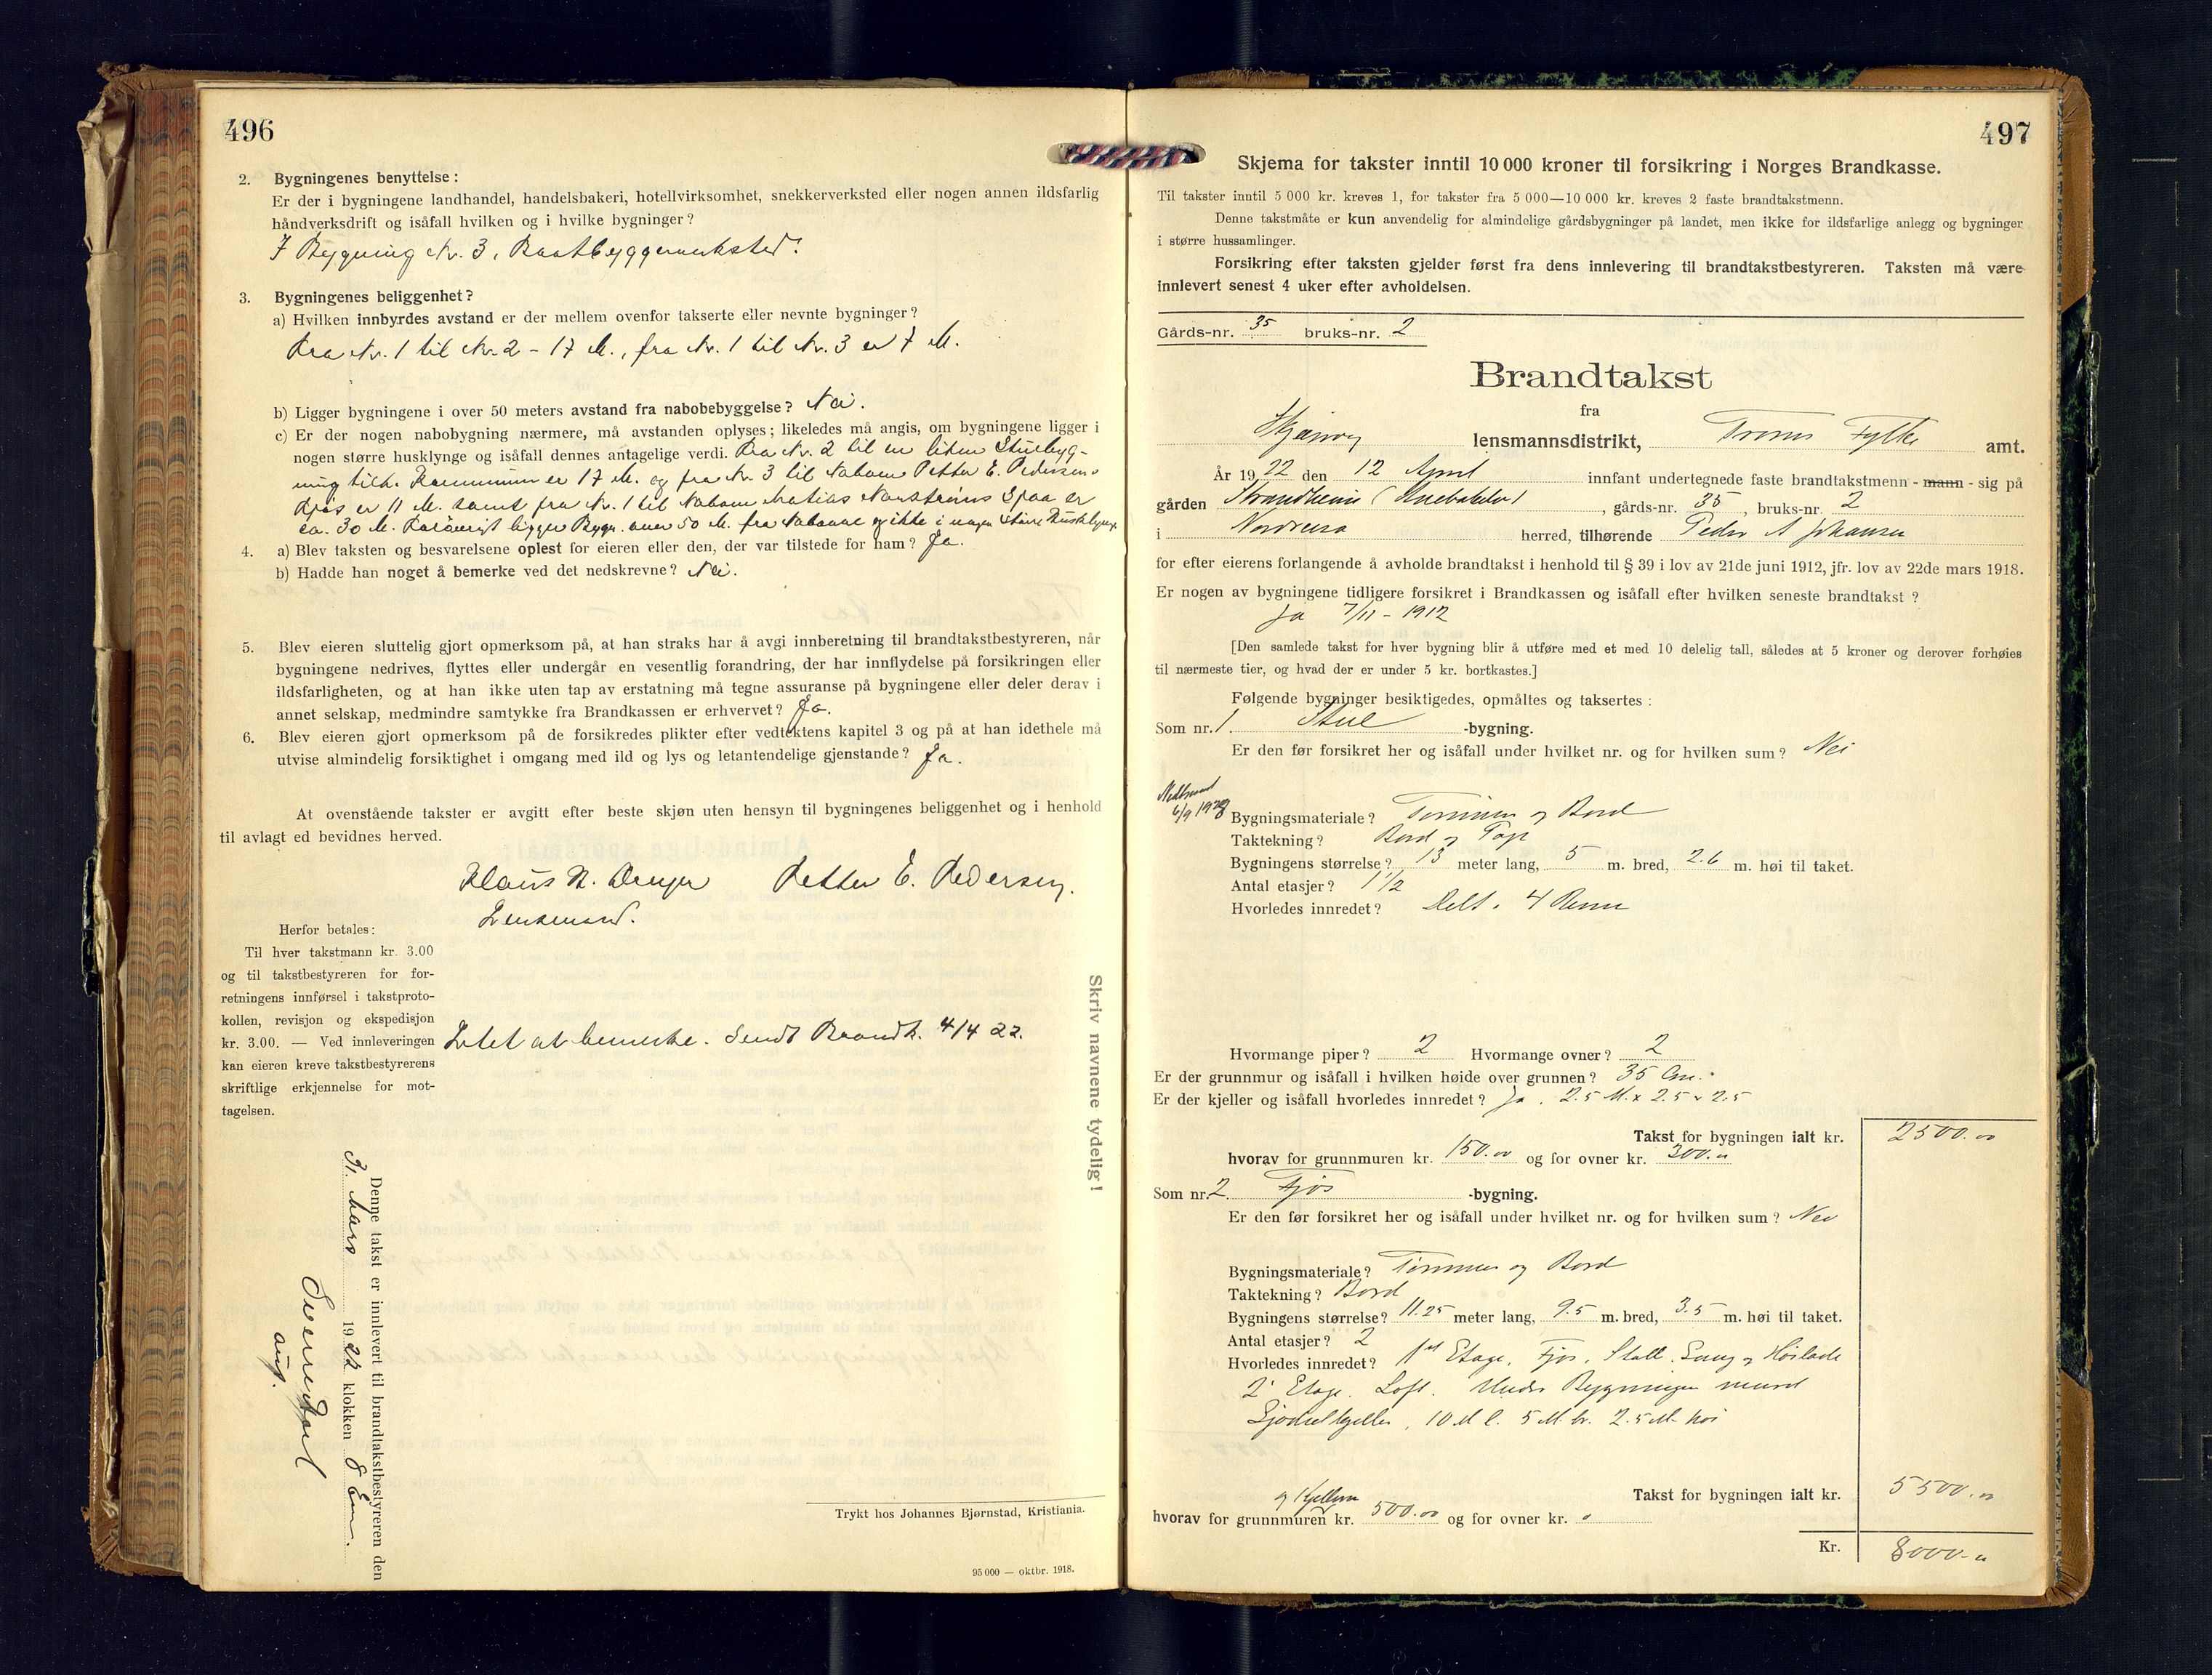 496
2. Bygningenes benyttelse:
Er der i bygningene landhandel, handelsbakeri, hotellvirksomhet, snekkerverksted eller nogen annen ildsfarlig
håndverksdrift og isåfall hvilken og i hvilke bygninger?
I Bygning Nr. 3, Baatbyggerverksted.
3. Bygningenes beliggenhet?
a) Hvilken innbyrdes avstand er der mellem ovenfor takserte eller nevnte bygninger?
Fra Nr. 1 til Nr. 2 - 17 M., fra Nr. 1 til Nr. 3 er 7 M.
b) Ligger bygningene i over 50 meters avstand fra nabobebyggelse? Nei.
c) Er der nogen nabobygning nærmere, må avstanden oplyses; likeledes må angis, om bygningene ligger i
nogen større husklynge og isåfall dennes antagelige verdi. Fra Nr. 2 til en liten Stuebyg-
ning tilh. Kommunen er 17 M. og fra Nr. 3 til Naboen Petter E. Pedersens
Fjøs er 11 M. samt fra Nr. 1 til Naboen Matias
ca. 30 M. Forøvrigt ligger Bygn. over 50 M. fra Naboene og ikke i nogen større Husklynge
4. a) Blev taksten og besvarelsene oplest for eieren eller den, der var tilstede for ham? Ja.
b) Hadde han noget å bemerke ved det nedskrevne? Nei.
5. Blev eieren sluttelig gjort opmerksom på, at han straks har å avgi innberetning til brandtakstbestyreren, når
bygningene nedrives, flyttes eller undergår en vesentlig forandring, der har innflydelse på forsikringen eller
ildsfarligheten, og at han ikke uten tap av erstatning må tegne assuranse på bygningene eller deler derav i
annet selskap, medmindre samtykke fra Brandkassen er erhvervet? Ja.
6. Blev eieren gjort opmerksom på de forsikredes plikter efter vedtektens kapitel 3 og på at han idethele må
utvise almindelig forsiktighet i omgang med ild og lys og letantendelige gjenstande? Ja.
At ovenstående takster er avgitt efter beste skjøn uten hensyn til bygningenes beliggenhet og i henhold
til avlagt ed bevidnes herved.
Klaus N. Petter E. Pedersen.
Lensmand.
Herfor betales:
Til hver takstmann kr. 3.00
og til takstbestyreren for for-
retningens innførsel i takstproto-
kollen, revisjon og ekspedisjon
kr. 3.00. — Ved innleveringen
kan eieren kreve takstbestyrerens
skriftlige erkjennelse for mot-
tagelsen.
Intet at bemerke. Sendt Brandk. 4/4 22.
Skriv navnene tydelig!
Denne takst er innlevert til brandtakstbestyreren den
31. mars 1922 klokken 8 Em.
Trykt hos Johannes Bjørnstad, Kristiania.
95 000 — oktbr. 1918.
497
Skjema for takster inntil 10 000 kroner til forsikring i Norges Brandkasse.
Til takster inntil 5 000 kr. kreves 1, for takster fra 5 000—10 000 kr. kreves 2 faste brandtakstmenn.
Denne takstmåte er kun anvendelig for almindelige gårdsbygninger på landet, men ikke for ildsfarlige anlegg og bygninger
i større hussamlinger.
Forsikring efter taksten gjelder først fra dens innlevering til brandtakstbestyreren. Taksten må være
innlevert senest 4 uker efter avholdelsen.
Gårds-nr. 35 bruks-nr. 2
Brandtakst
fra
Skjærvøy lensmannsdistrikt, Troms Fylke amt.
År 1922 den 12 April innfant undertegnede faste brandtakstmenn - mann - sig på
gården Strandheim, gårds-nr. 35, bruks-nr. 2
i Nordreisa herred, tilhørende Peder A Johansen
for efter eierens forlangende å avholde brandtakst i henhold til § 39 i lov av 21de juni 1912, jfr. lov av 22de mars 1918.
Er nogen av bygningene tidligere forsikret i Brandkassen og isåfall efter hvilken seneste brandtakst?
Ja 7/11 - 1912
[Den samlede takst for hver bygning blir å utføre med et med 10 delelig tall, således at 5 kroner og derover forhøies
til nærmeste tier, og hvad der er under 5 kr. bortkastes.]
Følgende bygninger besiktigedes, opmåltes og taksertes:
Som nr. 1. Stue -bygning.
Er den før forsikret her og isåfall under hvilket nr. og for hvilken sum? Nei
Nedbrændt
Bygningsmateriale? Tømmer og Bord
Taktekning? Bord og Pap
Bygningens størrelse? 13 meter lang, 5 m. bred, 2.6 m. høi til taket.
Antal etasjer? 1 1/2
Hvorledes innredet? Delt i 4 Rum
Hvormange piper? 2 Hvormange ovner? 2
Er der grunnmur og isåfall i hvilken høide over grunnen? 35 Cm.
Er der kjeller og isåfall hvorledes innredet? Ja. 2.5 M. x 2.5 x 2.5
Takst for bygningen ialt kr. 2500.00
hvorav for grunnmuren kr. 150.00 og for ovner kr. 300.00
Som nr. 2. Fjøs -bygning.
Er den før forsikret her og isåfall under hvilket nr. og for hvilken sum? Nei
Bygningsmateriale? Tømmer og Bord
Taktekning? Bord
Bygningens størrelse? 11.25 meter lang, 9.5 m. bred, 3.5 m. høi til taket.
Antal etasjer? 2
Hvorledes innredet? 1ste Etage. Fjøs, Stall, Gang og Høilade
2. Etage. Loft. Under Bygningen muret
Gjødselkjeller, 10 M l. 5 M br. 2.5 M. høi
Takst for bygningen ialt kr. 5500.00
og Kjelleren
hvorav for grunnmuren kr. 500.00 og for ovner kr.
Kr. 8000.00